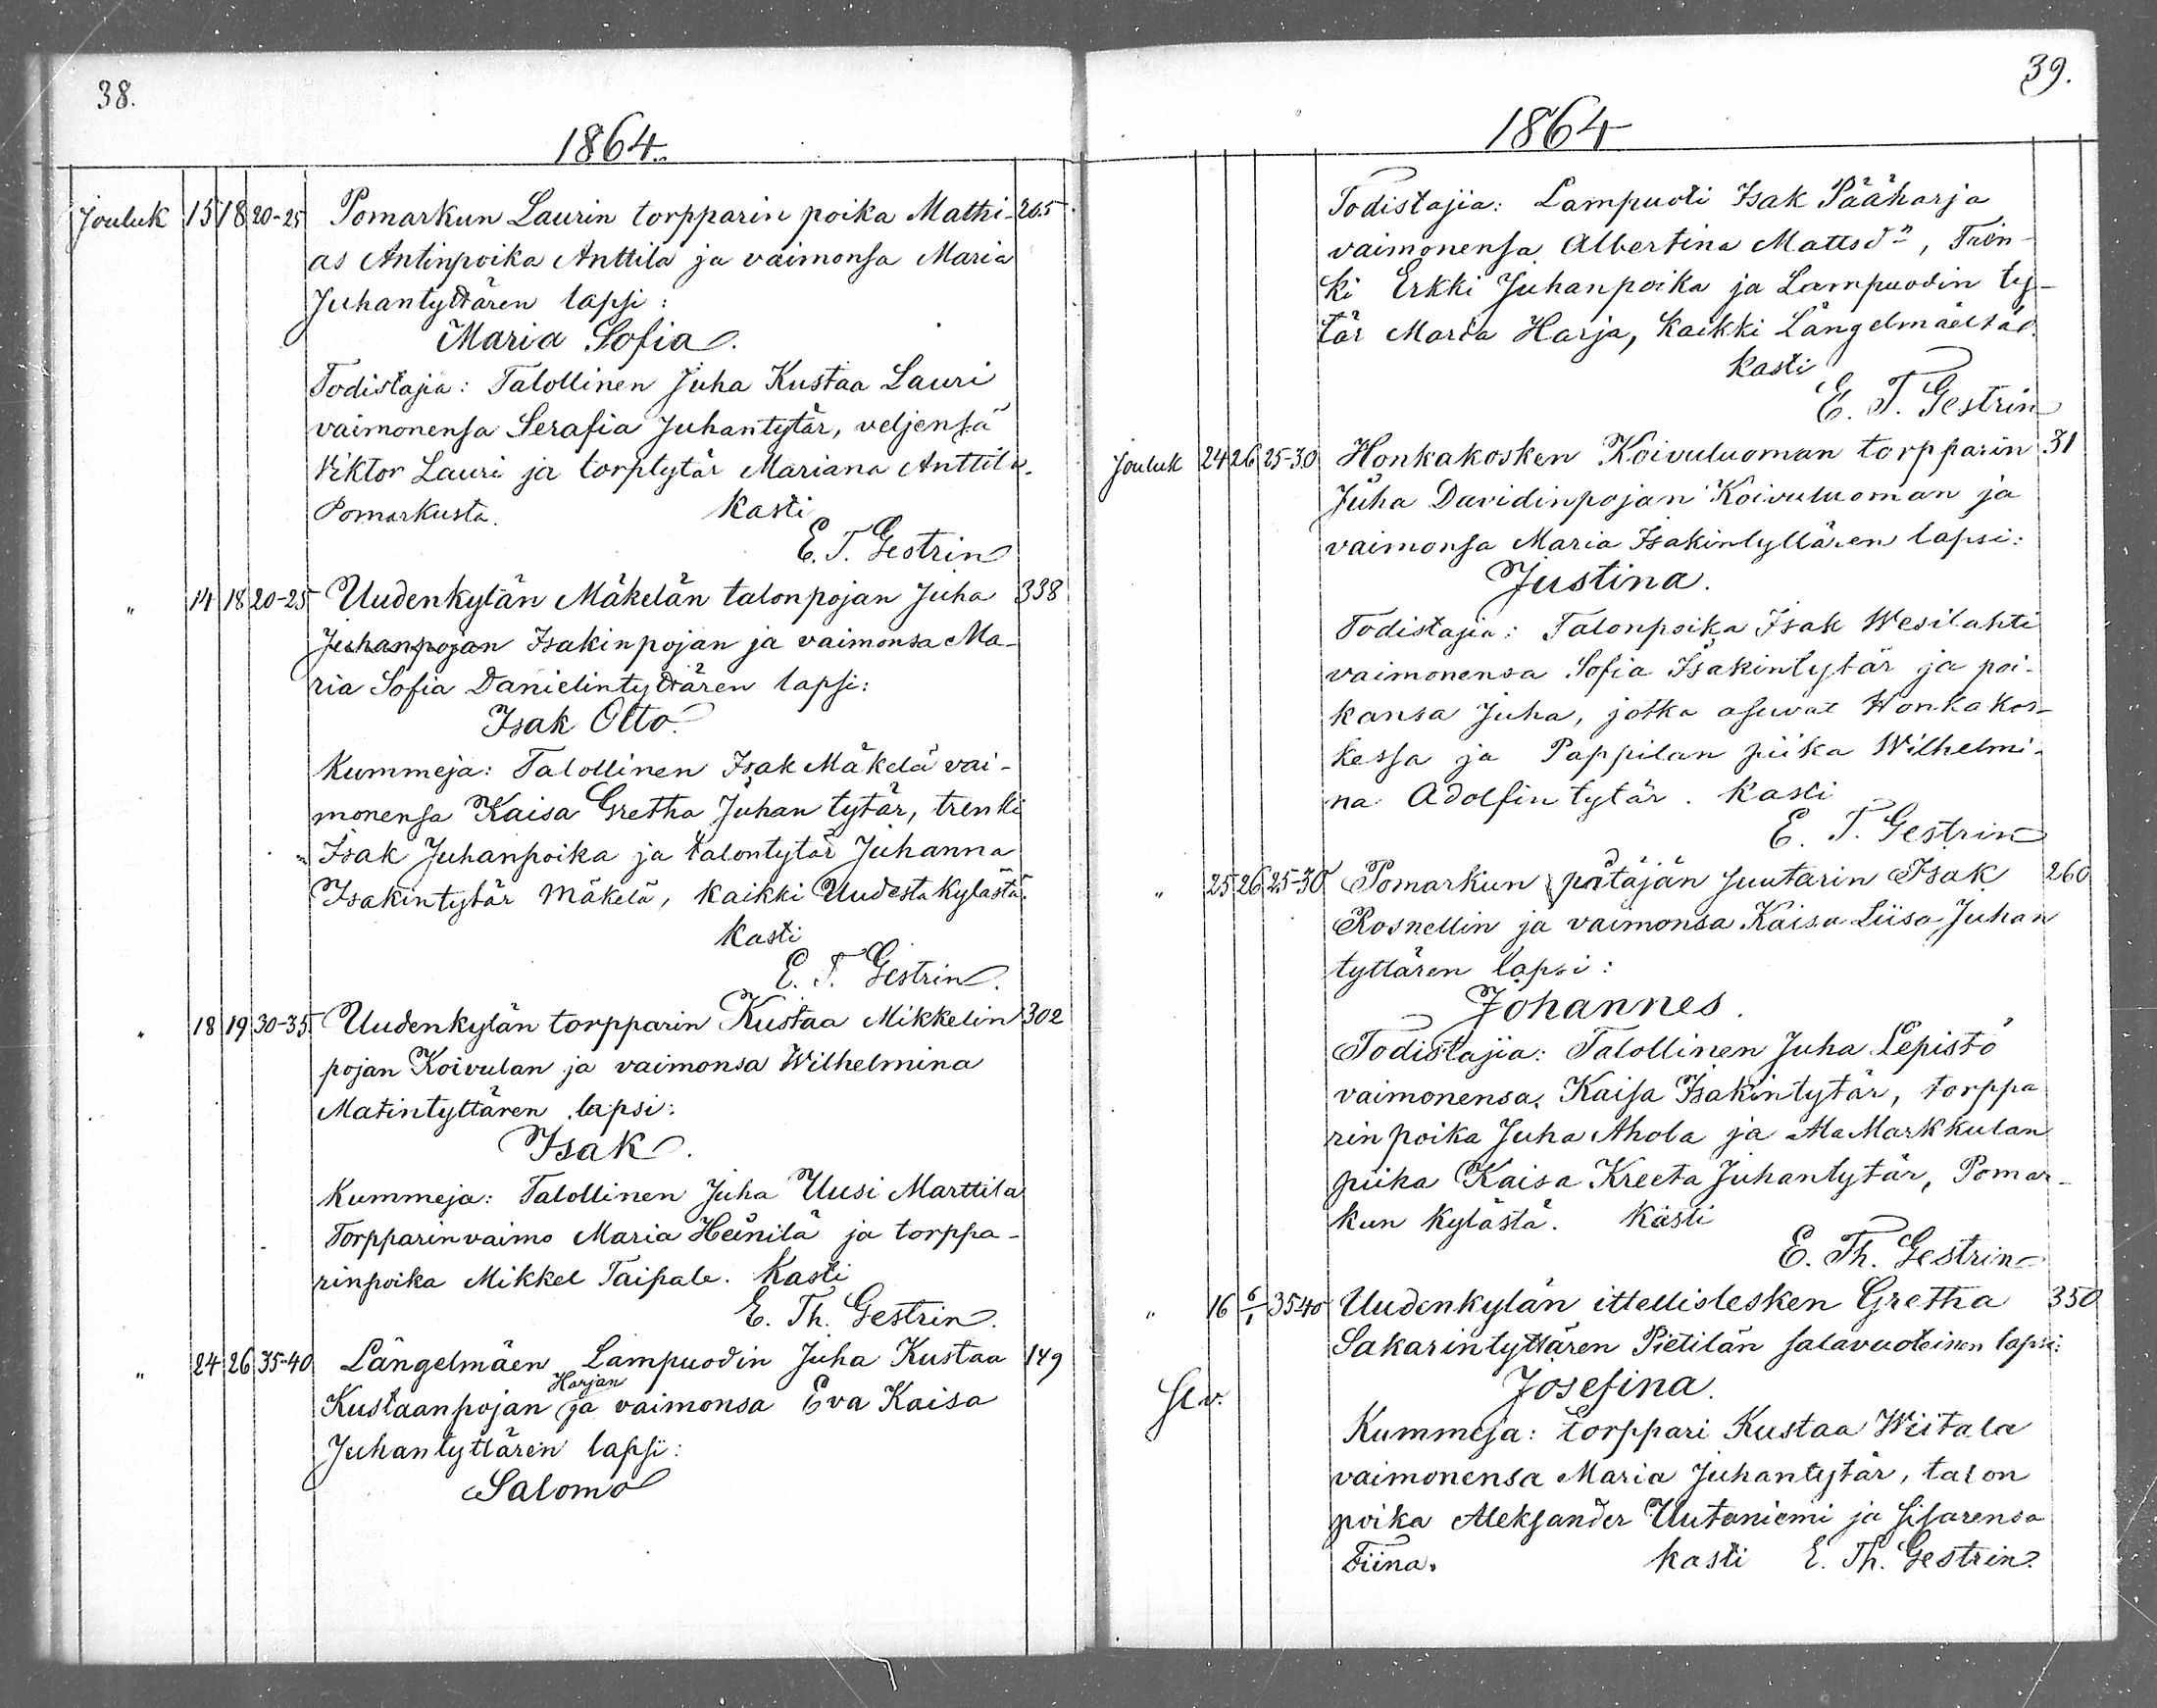 38.
1864.
Jouluk 15 18 20-25 Pomarkun Laurin torpparin poika Mathi- 205
as Antinpoika Anttila ja vaimonsa Maria
Juhantyttären lapsi:
Maria Sofia.
Todistajia: Talollinen Juha Kustaa Lauri
vaimonensa Serafia Juhantytär, veljensä
Viktor Lauri ja torptytär Mariana Anttila.
Pomarkusta. Kasti
E. T. Gestrin
" 14 18 20-25 Uudenkylän Mäkelän talonpojan Juha 338
Juhanpojan Isakinpojan ja vaimonsa Ma-
ria Sofia Danielintyttären lapsi:
Isak Otto.
Kummeja: Talollinen Isak Mäkelä vai-
monensa Kaisa Gretha Juhan tytär, trenki
Isak Juhanpoika ja talontytär Juhanna
Isakintytär Mäkelä, kaikki Uudesta kylästä.
Kasti
E. T. Gestrin.
" 18 19 30-35 Uudenkylän torpparin Kustaa Mikkelin 302
pojan Koivulan ja vaimonsa Wilhelmina
Matintyttären lapsi:
Isak.
Kummeja: Talollinen Juha Uusi Marttila
Torpparinvaimo Maria Heinilä ja torppa-
rinpoika Mikkel Taipale. Kasti
E. Th. Gestrin.
" 24 26 35-40 Längelmäen Lampuodin Juha Kustaa 149
Harjan
Kustaanpojan ja vaimonsa Eva Kaisa
Juhantyttären lapsi:
Salomo
39.
1864
Todistajia: Lampuoti Isak Pääharja
vaimonensa Albertina Mattsdr, Tren-
ki Erkki Juhanpoika ja Lampuodin ty-
tär Maria Harja, kaikki Längelmäeltäe.
Kasti
E. T. Gestrin
Jouluk 24 26 25-30 Honkakosken Koivuluoman torpparin 31
Juha Davidinpojan Koivuluoman ja
vaimonsa Maria Isakintyttären lapsi:
Justina.
Todistajia: Talonpoika Isak Wesilahti
vaimonensa Sofia Isakintytär ja poi-
kansa Juha, jotka asuvat Honkakos-
kessa ja Pappilan piika Wilhelmi-
na Adolfin tytär. Kasti
E. T. Gestrin
" 25 26 25-30 Pomarkun pätäjän suutarin Isak 260
Rosnellin ja vaimonsa Kaisa Liisa Juhan
tyttären lapsi:
Johannes.
Todistajia: Talollinen Juha Lepistö
vaimonensa Kaisa Isakintytär, torppa
rin poika Juha Ahola ja AlaMarkkulan
piika Kaisa Kreeta Juhantytär, Pomar-
kun kylästä. Kasti
E. Th. Gestrin
" 16 6/1 35 40 Uudenkylän ittellislesken Gretha 350
Sakarintyttären Pietilän salavuoteinen lapsi:
Josefina.
Kummeja: torppari Kustaa Wiitala
vaimonensa Maria Juhantytär, talon
poika Aleksander Uutaniemi ja sisarensa
Tiina. Kasti E. Th. Gestrin.